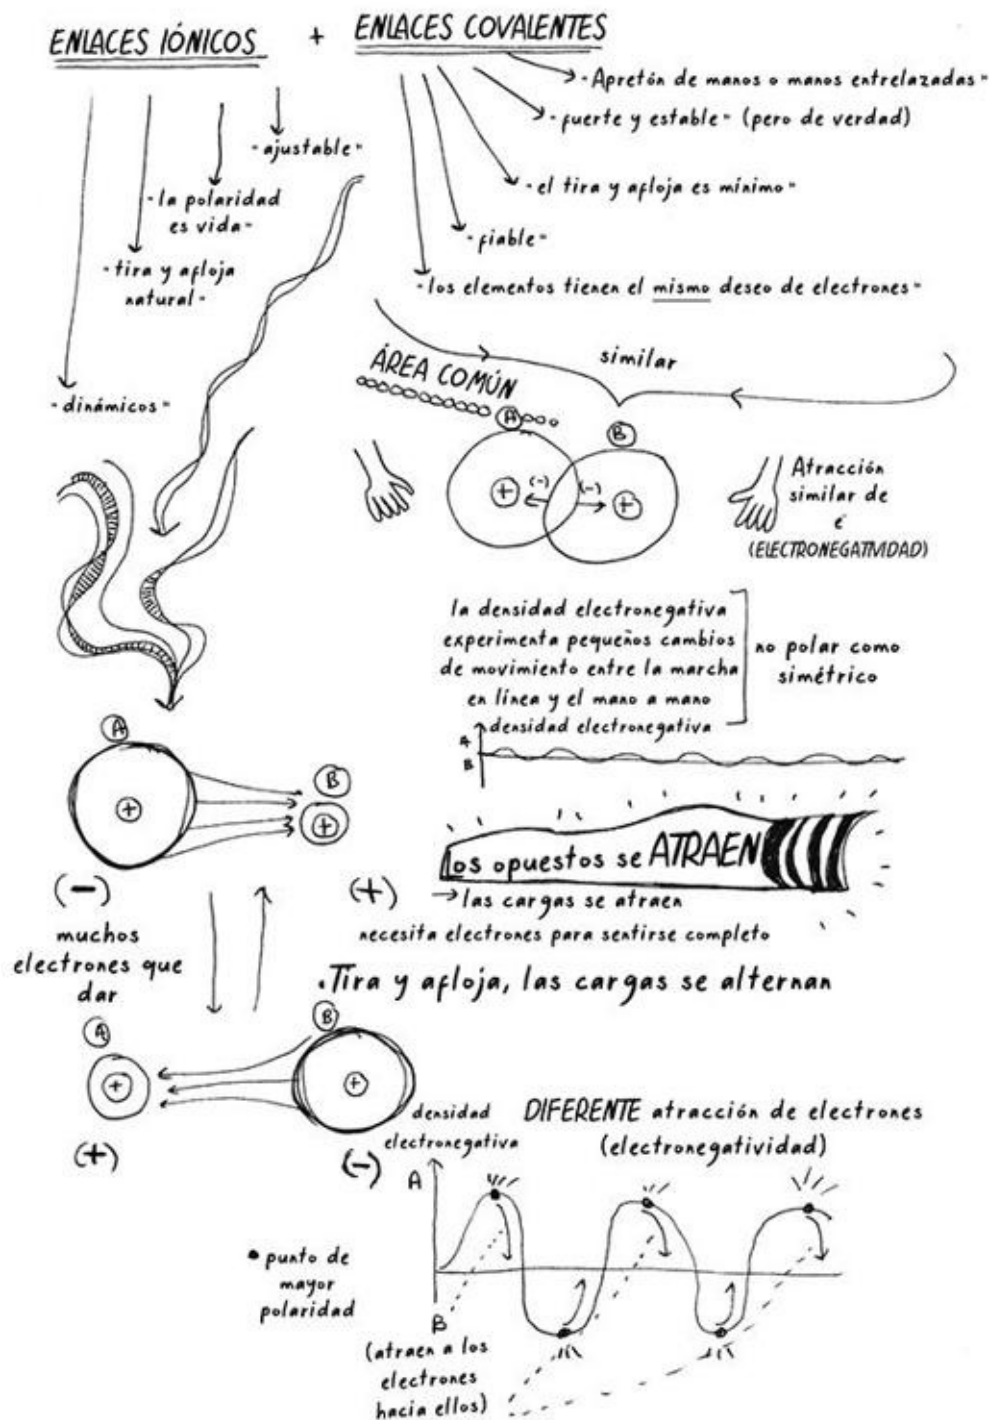 ENLACES IÓNICOS + ENLACES COVALENTES
-ajustable-
-la polaridad
es vida-
-tira y afloja
natural-
-dinámicos-
-Apretón de manos o manos entrelazadas-
-fuerte y estable- (pero de verdad)
-el tira y afloja es mínimo-
-fiable-
-los elementos tienen el mismo deseo de electrones-
similar
ÁREA COMÚN
A
B
+ (-) (-) +
Atracción
similar de
e
(ELECTRONEGATIVIDAD)
la densidad electronegativa
experimenta pequeños cambios
de movimiento entre la marcha
en línea y el mano a mano
no polar como
simétrico
densidad electronegativa
A
B
A
B
+
+
(-)
(+)
Los opuestos se ATRAEN
→ las cargas se atraen
necesita electrones para sentirse completo
muchos
electrones que
dar
·Tira y afloja, las cargas se alternan
A
B
+
+
(+)
(-)
densidad
electronegativa
DIFERENTE atracción de electrones
(electronegatividad)
A
B
• punto de
mayor
polaridad
(atraen a los
electrones
hacia ellos)